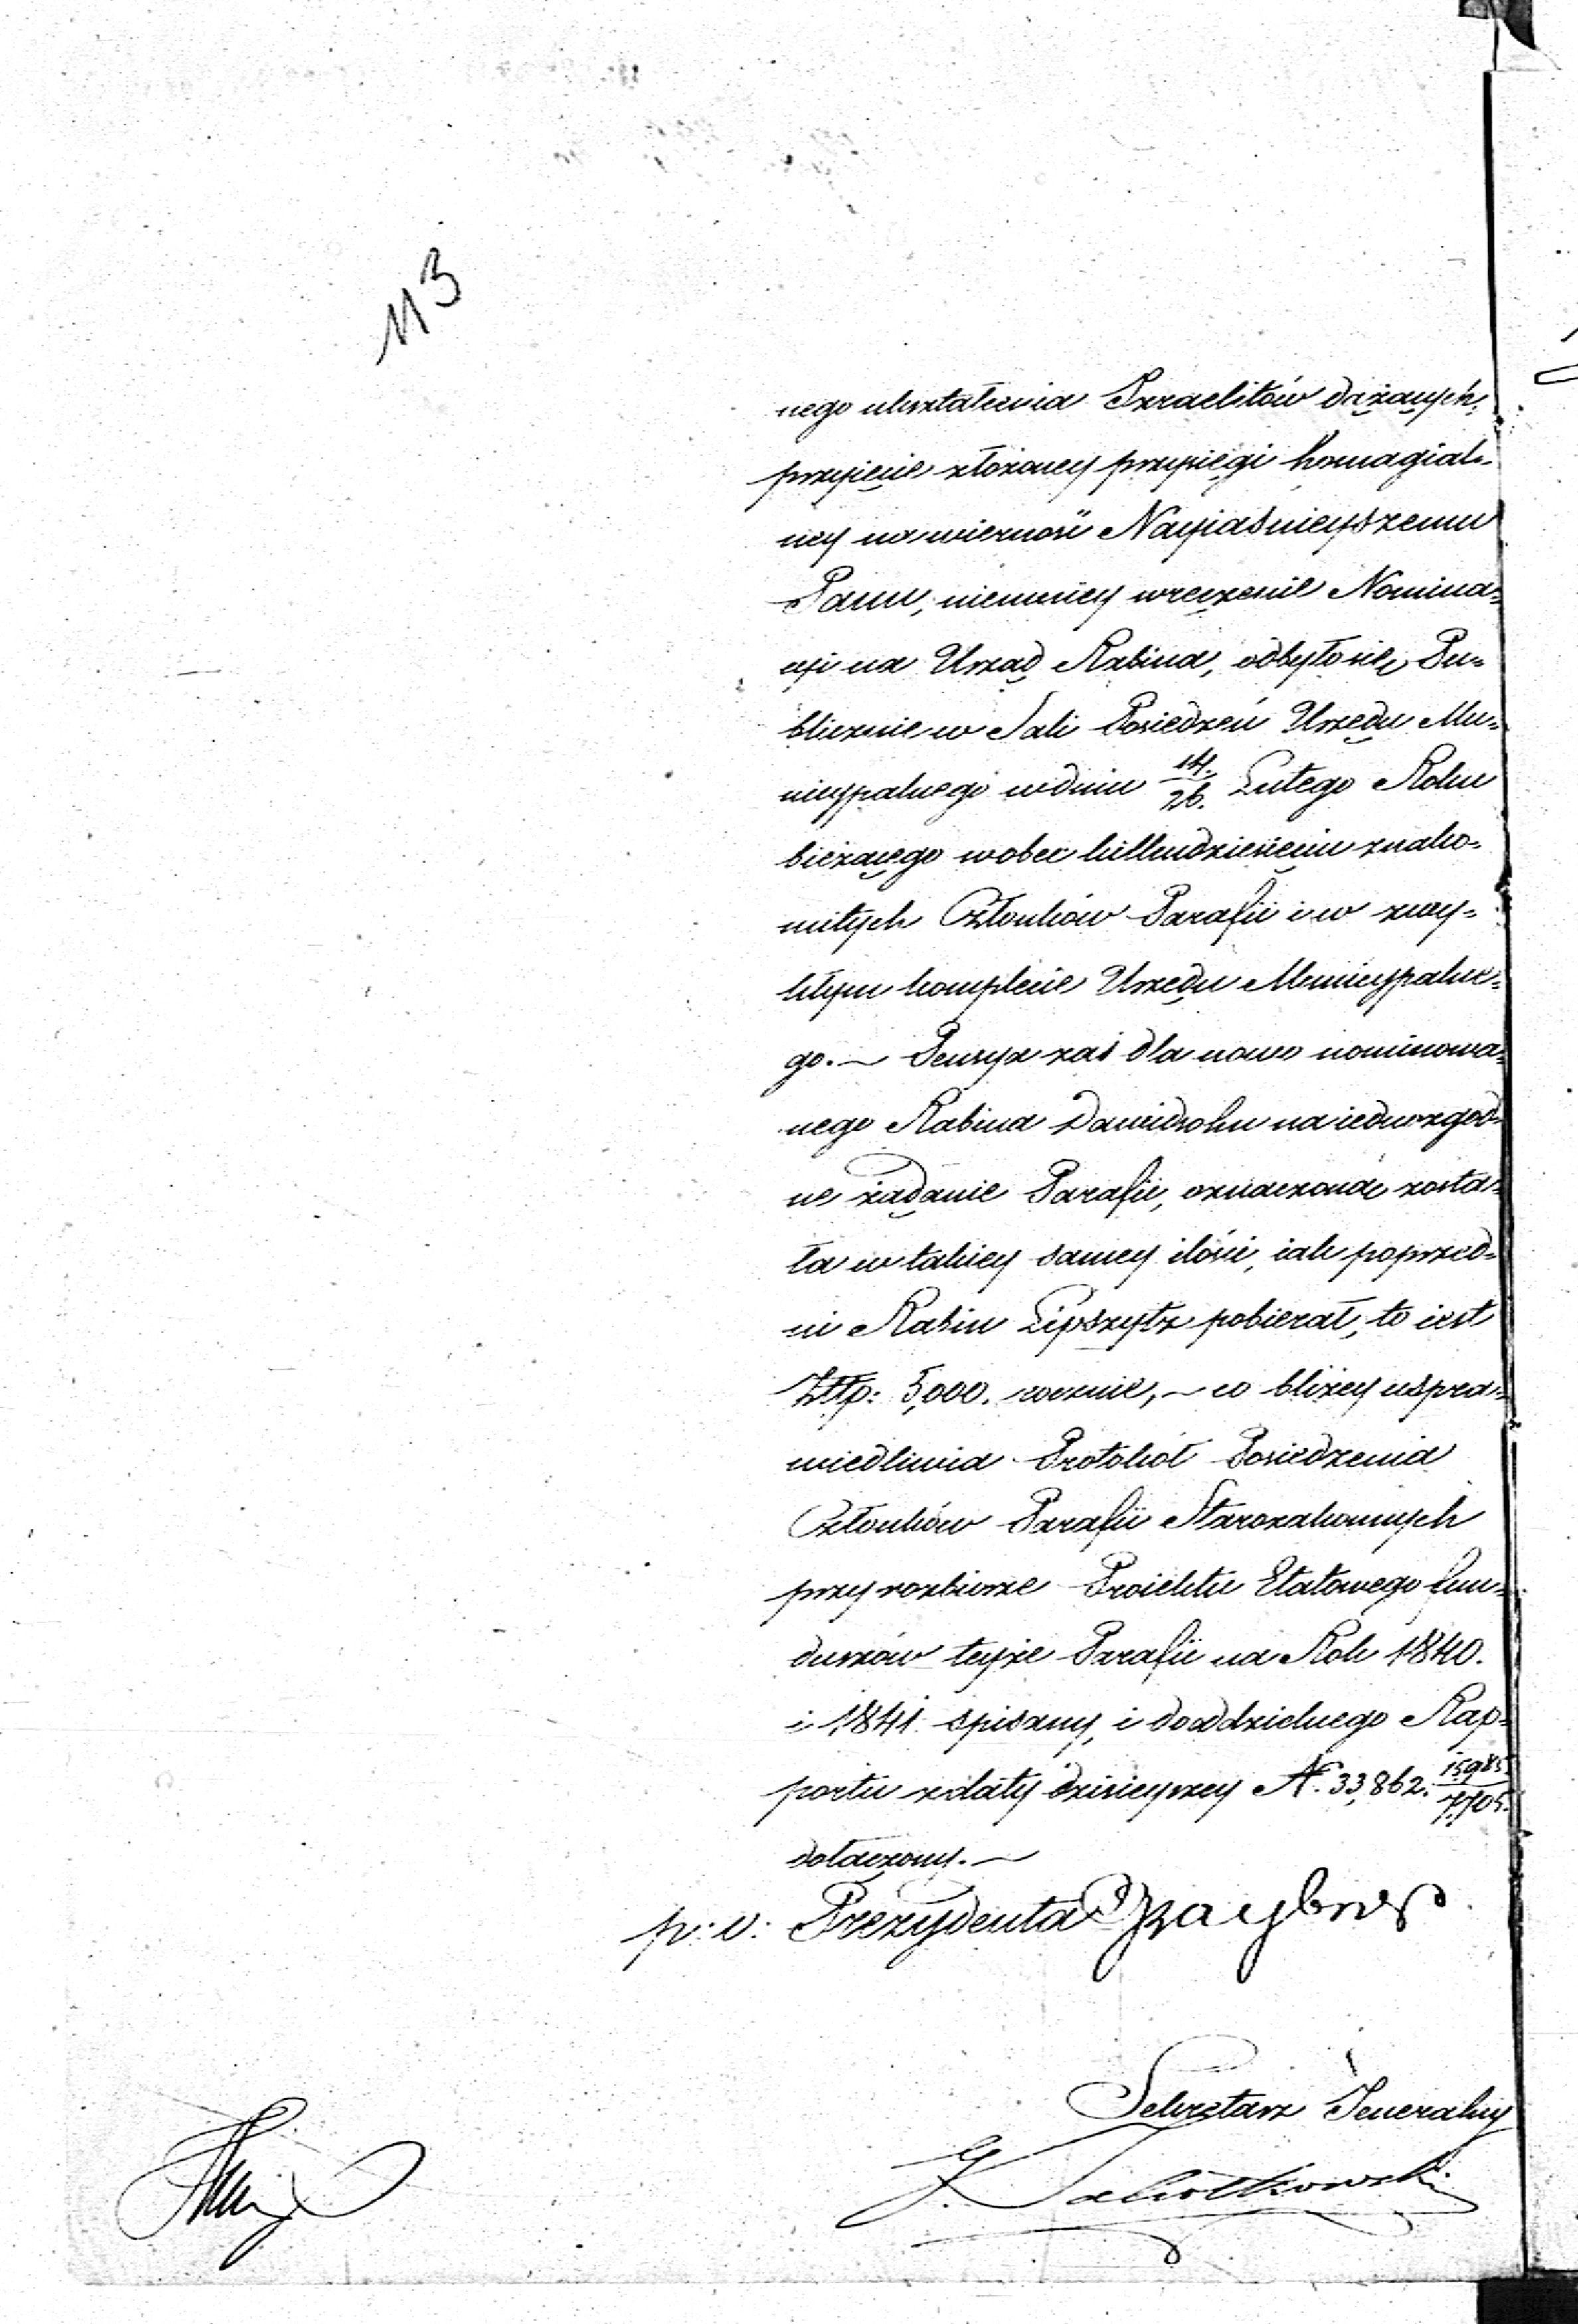 113
nego ukształcenia Izraelitów dążących,
przyięcie złożoney przysięgi homagial-
ney na wierność Nayiaśnieyszemu
Panu, niemniey wręczenie Nomina=
cyi na Urząd Rabina, odbyło się Pu=
blicznie w Sali Posiedzeń Urzędu Mu=
nicypalnego w dniu 14./26. Lutego Roku
bieżącego wobec kilkudziesięciu znako=
mitych Członków Parafii i w zwy=
kłym komplecie Urzędu Municypalne=
go. — Pensya zaś dla nowo nominowa=
nego Rabina Dawidsohn na iednozgod=
ne żądanie Parafii, oznaczoną zosta=
ła w takiey samey ilości, iak poprzed=
ni Rabin Lipszytz pobierał, to iest
Złtp: 5,000. rocznie, — co bliżey uspra=
wiedliwia Protokół Posiedzenia
Członków Parafii Starozakonnych
przy rozbiorze Proiektu Etatowego fun=
duszów teyże Parafii na Rok 1840.
i 1841. spisany, i do oddzielnego Rap=
portu z daty dzisieyszey N. 33,862. 15985/7705.
dołączony. —
p: o: Prezydenta
Sekretarz Jeneralny